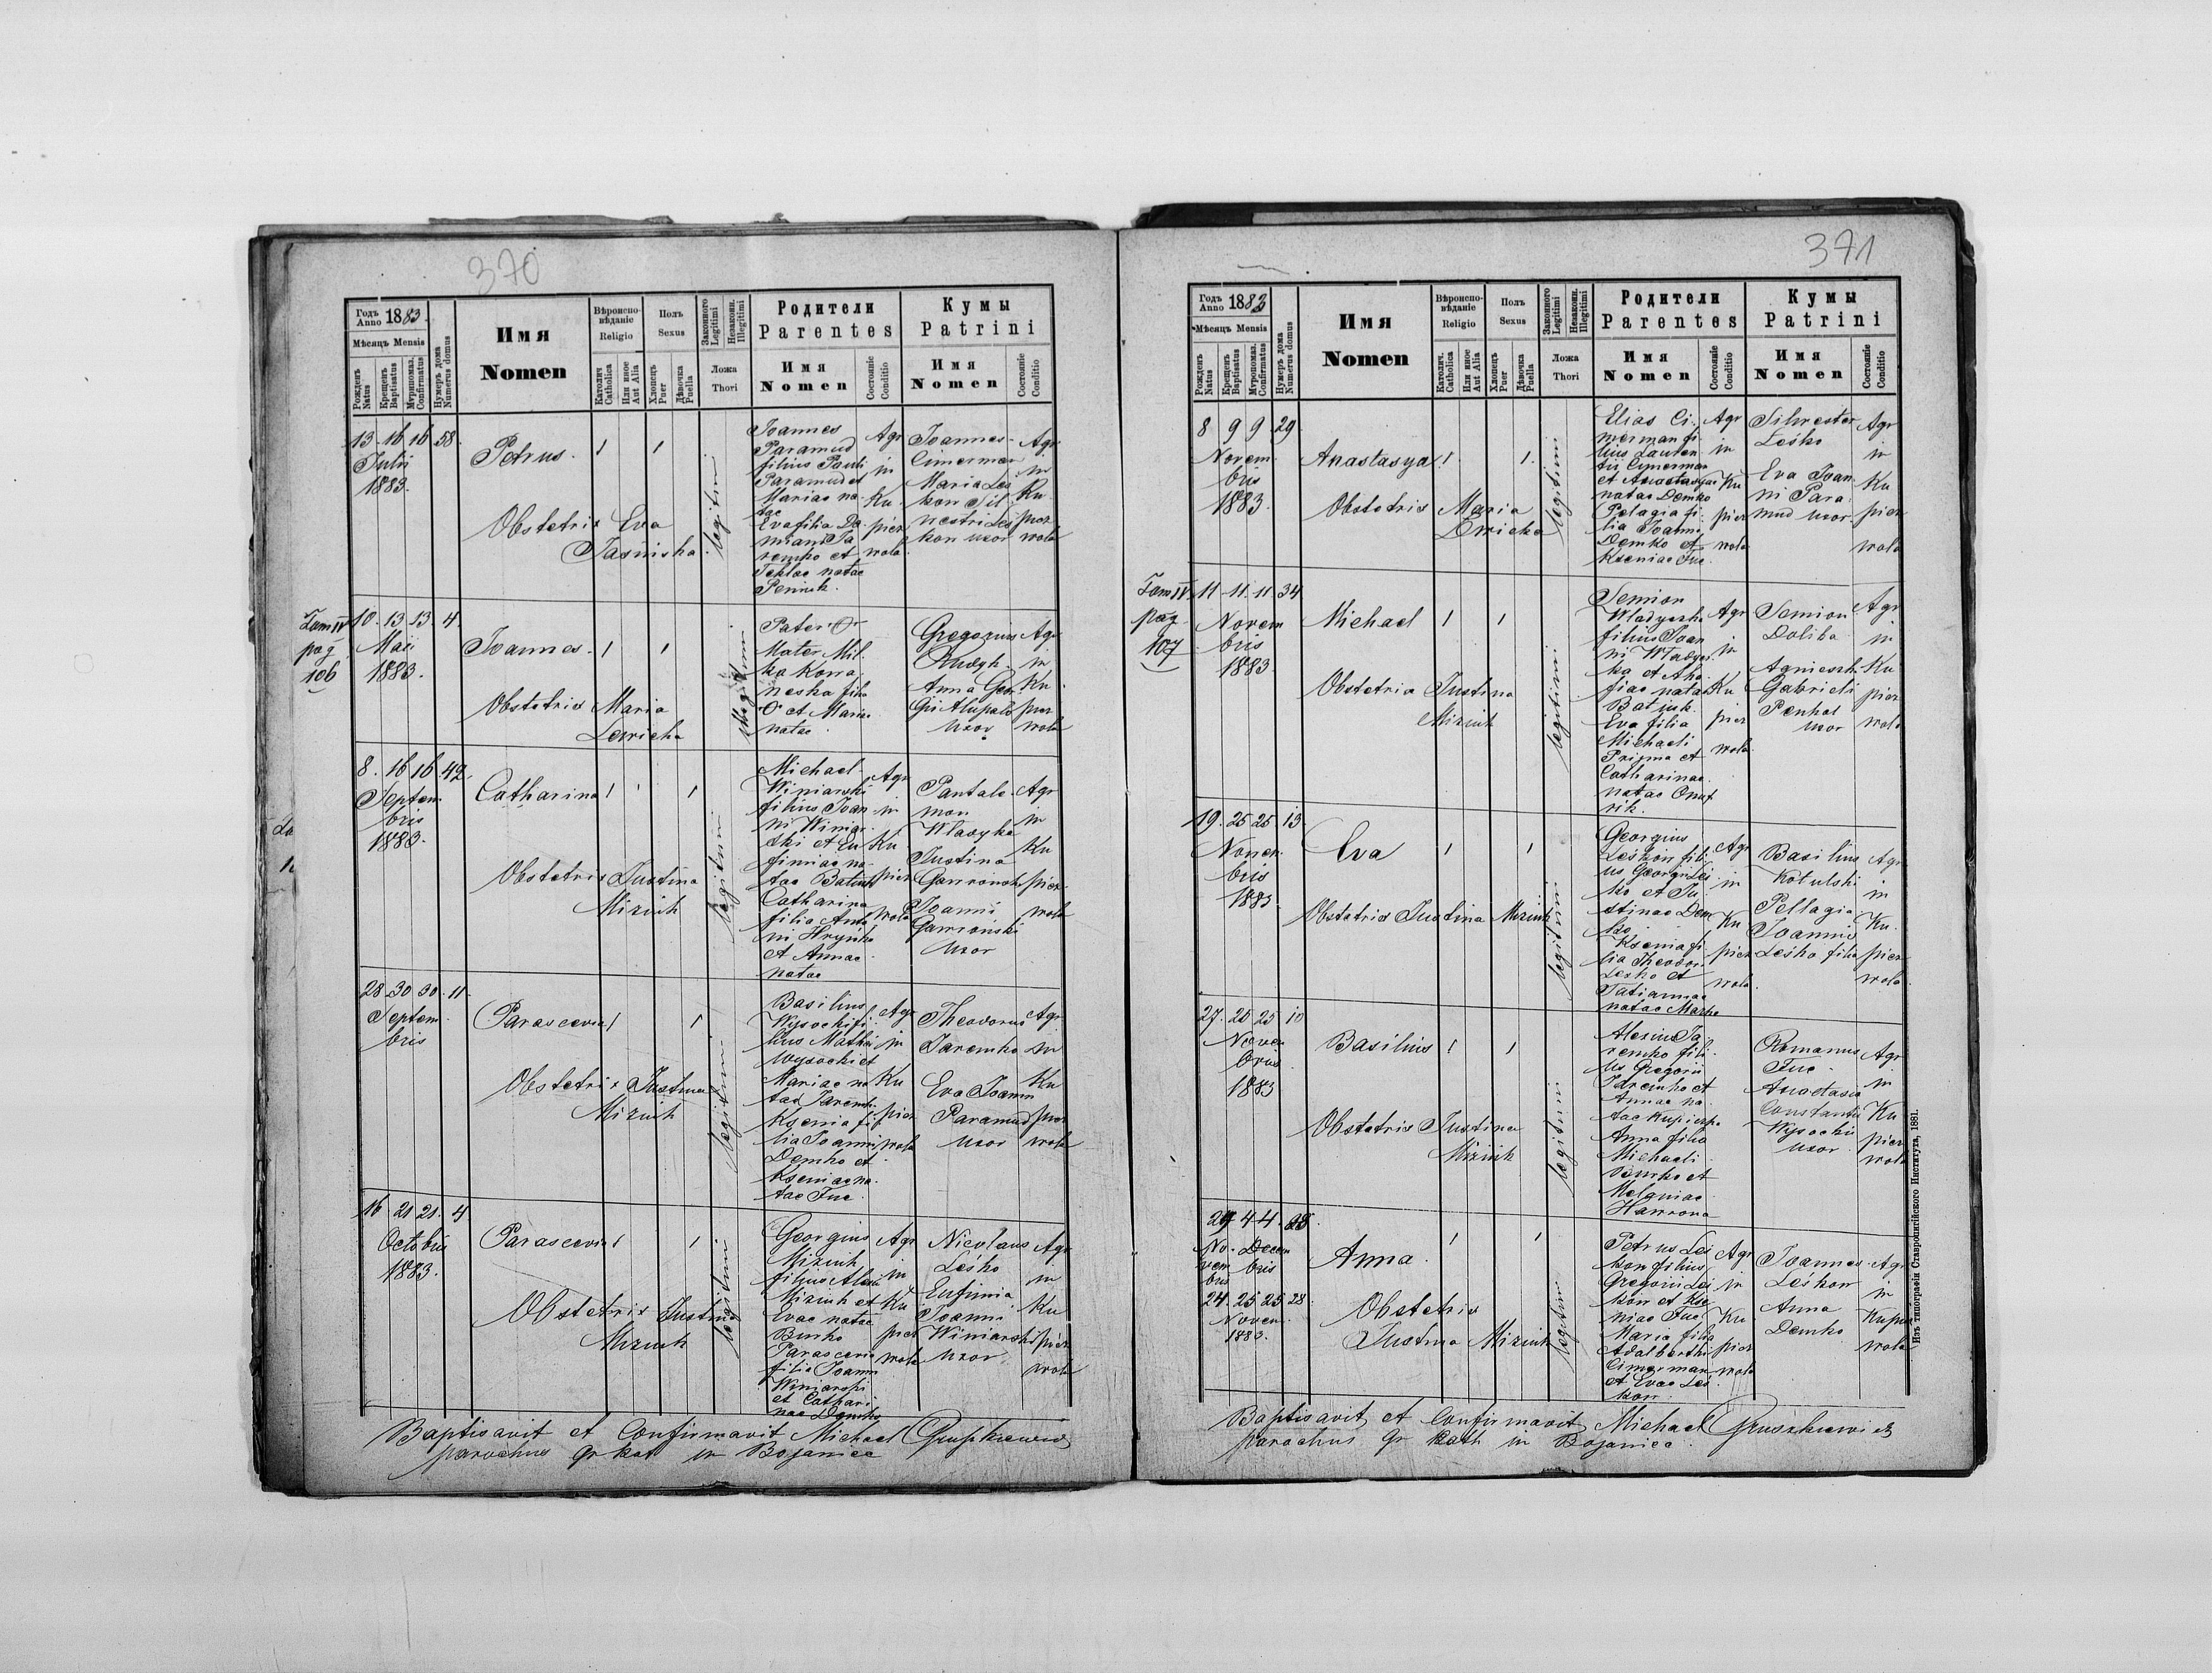 370
Годъ Anno 1883.
Мѣсяцъ Mensis
Рожденъ Natus
Крещенъ Baptisatus
Мѵропомаз. Confirmatus
Нумеръ дома Numerus domus
Имя
Nomen
Вѣроиспо-
вѣданіе
Religio
Католич. Catholica
Или иное Aut Alia
Полъ
Sexus
Хлопецъ Puer
Дѣвочка Puella
Законного Legitimi
Незаконн. Illegitimi
Ложа
Thori
Родители
Parentes
Имя
Nomen
Состояніе Conditio
Кумы
Patrini
Имя
Nomen
Состояніе Conditio
13. 16 16 58.
Julii
1883.
Petrus.
Obstetrix Eva
legitimi
Joannes
Paramud
filius Pauli
Paramud et
Mariae na-
tae
Eva filia Da-
miani Ja
remko et
Teklae natae
Agr
in
Ku-
pier
wola
Joannes
Cimerman
Maria Les
kon Sil
vestri Les
kon uxor
Agr
in
Ku-
pier
wola
Tom IV
pag
106
10. 13. 13. 4.
Maii
1883.
Joannes.
Obstetrix Maria
Illegitimi
Pater O
Mater Mil-
ka Korna
neska filia
O et Maria
natae
Gregorius
Anna Geor-
gii
uxor
Agr
in
Ku
pier
wola
8. 16 16 42.
Septem
bris
1883.
Catharina
Obstetrix Justina
Miziuk
legitimi
Michael
Winiarski
filius Joan
ni Winiar-
ski et Eu
fimiae na-
tae Batiuk
Catharina
filia Anto
ni Hryńko
et Annae
natae
Agr
in
Ku
pier
wola
Pantale-
mon
Wladyka
Justina
Gawronsk
Joanni
Gawronski
uxor
Agr
in
Ku
pier
wola
28. 30 30. 11.
Septem
bris
Parascevia
Obstetrix Justina
Miziuk
legitimi
Basilius
Wysocki fi-
lius Mathei
Wysocki et
Mariae na
tae Jaremko
Ksenia fi
lia Joanni
Demko et
Kseniae na-
tae Fuc.
Agr
in
Ku
pier
wola
Theodorus
Jaremko
Eva Joanni
Paramud
uxor
Agr
in
Ku
pier
wola
16 21 21. 4
Octobris
1883.
Parascevia
Obstetrix Justina
Miziuk
legitimi
Georgius
Miziuk
filius Alexii
Miziuk et
Evae natae
Burko
Parascevia
filia Joanni
Winiarski
et Cathari
nae Demko
Agr
in
Ku
pier
wola
Nicolaus
Leśko
Eufimia
Joanni
Winiarski
uxor
Agr
in
Ku
pier
wola
Baptisavit et Confirmavit Michael Gruszkiewicz
parochus gr kat in Bojaniec
371
Годъ Anno 1883
Мѣсяцъ Mensis
Рожденъ Natus
Крещенъ Baptisatus
Мѵропомаз. Confirmatus
Нумеръ дома Numerus domus
Имя
Nomen
Вѣроиспо-
вѣданіе
Religio
Католич. Catholica
Или иное Aut Alia
Полъ
Sexus
Хлопецъ Puer
Дѣвочка Puella
Законного Legitimi
Незаконн. Illegitimi
Ложа
Thori
Родители
Parentes
Имя
Nomen
Состояніе Conditio
Кумы
Patrini
Имя
Nomen
Состояніе Conditio
8 9 9 29.
Novem
bris
1883
Anastasya
Obstetrix Maria
legitimi
Elias Ci-
merman fi-
lius Lauren
tii Cimerman
et Anastasyae
natae Demko
Pelagia fi-
lia Joanni
Demko et
Kseniae Fuc.
Agr
in
Ku
pier
wola
Silvester
Leśko
Eva Joan
ni Para-
mud uxor
Agr
in
Ku
pier
wola
Tom IV.
pag
107
11 11 11 34
Novem
bris
1883.
Michael
Obstetrix Justina
Miziuk
legitimi
Semion
Wladyczka
filius Joan
ni Wladycz-
ka et Aha-
fiae natae
Batiuk.
Eva filia
Michaeli
Prizma et
Catharinae
natae Onuf
rik.
Agr
in
Ku
pier
wola
Semion
Doliba
Agnieszk
Gabrieli
Penkal
uxor
Agr
in
Ku
pier
wola
19. 25 25. 13.
Novem
bris
1883.
Eva
Obstetrix Justina Miziuk
legitimi
Georgius
Leskow fili
us Georgi Leś
ko et Ju-
stinae Dem
ko.
Ksenia fi-
lia Theodor
Leśko et
Tatiannae
natae
Agr
in
Ku
pier
wola
Basilius
Kotulski
Pellagia
Joannis
Leśko filia
Agr
in
Ku-
pier
wola
27. 25 25 10
Novem
bris
1883
Basilius
Obstetrix Justina
Miziuk
legitimi
Alexius Ja
remko fili-
us Gregorii
Jaremko et
Annae na
tae
Anna filia
Michaeli
Demko et
Melaniae
Hawrona
Romanus
Fuc
Anastasia
Constantii
Wysocki
uxor
Agr
in
Ku
pier
wola
29 4 4. 28.
No-
vem
bris
Decem
bris
24. 25 25 28.
Novem.
1883.
Anna.
Obstetrix
Justina Miziuk
legitimi
Petrus Leś
kow filius
Gregorii Leś
kow et Kse
niae Fuc
Maria filia
Adalberthi
Cimerman
et Evae Leś
kow.
Agr
in
Ku-
pier
wola
Joannes
Leśkow
Anna
Demko
Agr
in
Kupier
wola
Baptisavit et Confirmavit Michael Gruszkiewicz
parochus gr kath in Bojaniec.
Изъ типографіи Ставропигійского Института, 1881.